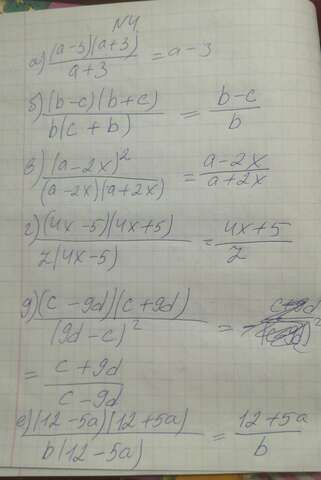 N4
а) (a-3)(a+3) / a+3 = a-3
б) (b-c)(b+c) / b(c+b) = b-c / b
в) (a-2x)² / (a-2x)(a+2x) = a-2x / a+2x
г) (4x-5)(4x+5) / z(4x-5) = 4x+5 / z
д) (c-9d)(c+9d) / (9d-c)² =
= c+9d / c-9d
е) (12-5a)(12+5a) / b(12-5a) = 12+5a / b